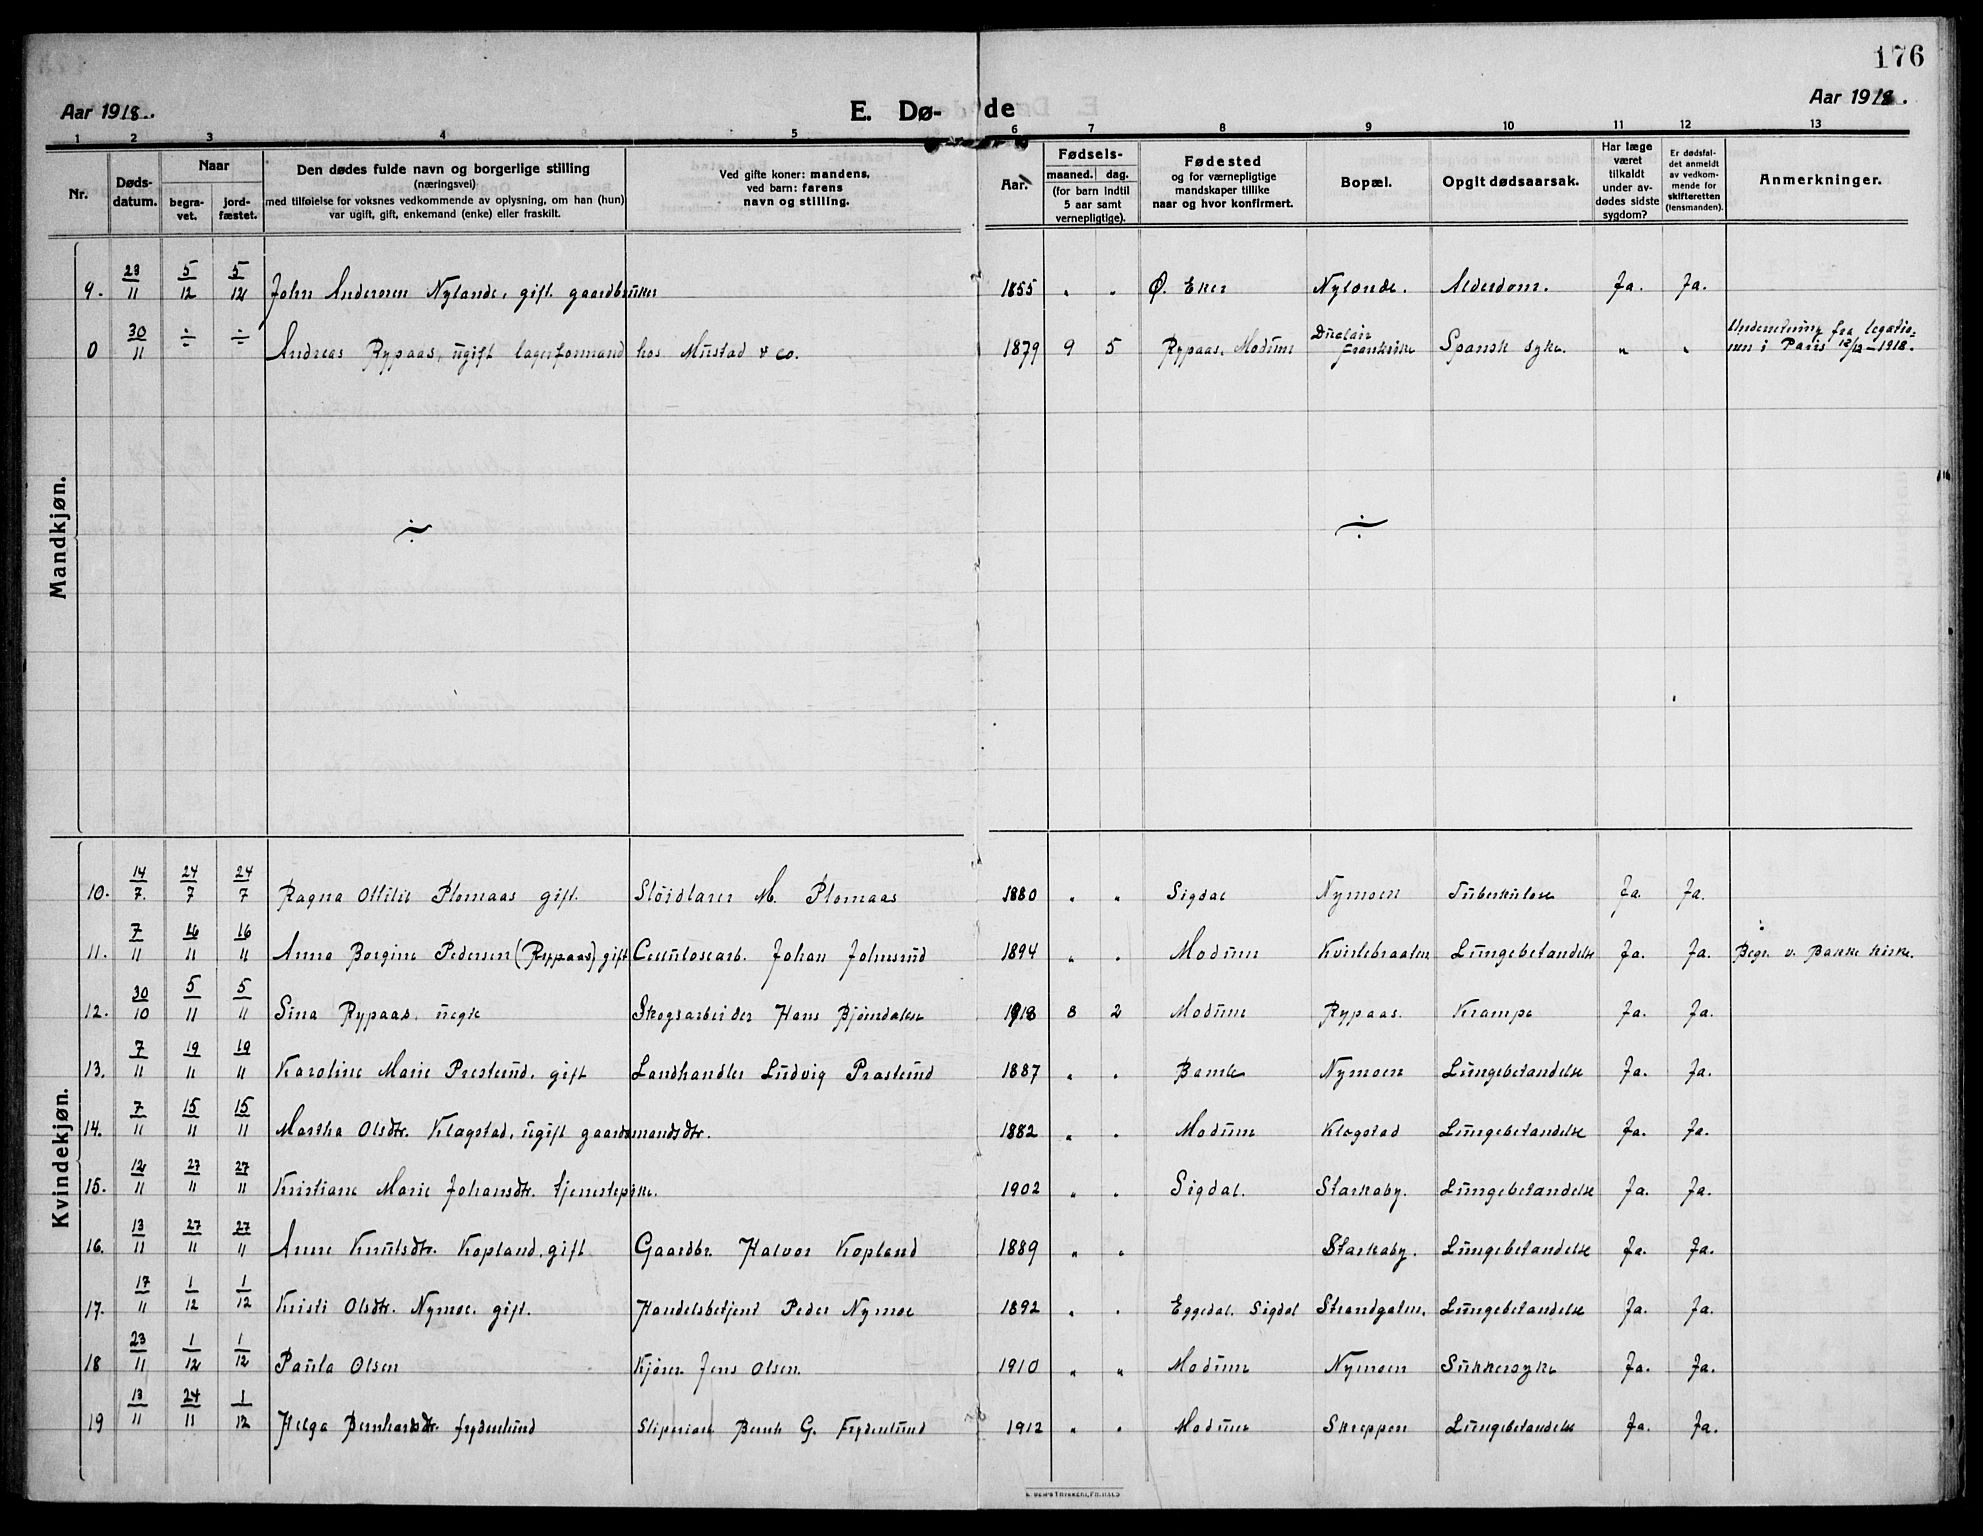 176
Aar 1918.
E. Dø- de
Aar 1918.
1 2 3 4 5 6 7 8 9 10 11 12 13
Nr. Døds-datum. Naar begra-vet. jord-fæstet. Den dødes fulde navn og borgerlige stilling (næringsvei) med tilføielse for voksnes vedkommende av oplysning, om han (hun) var ugift, gift, enkemand (enke) eller fraskilt. Ved gifte koner: mandens, ved barn: farens navn og stilling. Aar. Fødsels- maaned. dag. (for barn indtil 5 aar samt vernepligtige). Fødested og for værnepligtige mandskaper tillike naar og hvor konfirmert. Bopæl. Opgit dødsaarsak. Har læge været tilkaldt under av-dødes sidste sygdom? Er dødsfal-det anmeldt av vedkom-mende for skifteretten (lensmanden). Anmerkninger.
Mandkjøn.
9. 23/11 5/12 5/12 John Andersen Nylande, gift. gaardbruker 1855 " " Ø. Eker Nylande. Alderdom. Ja. Ja.
0 30/11 ÷ ÷ Andreas Rypaas, ugift lagerformand hos Mustad & co. 1879 9 5 Rypaas, Modum Duclair Frankrike Spansk syke. " " Underretning fra legatio-nen i Paris 12/12-1918.
÷ ÷
Kvindekjøn.
10. 14/7. 24/7 24/7 Ragna Ottilie Plomaas gift. Sløidlærer M. Plomaas 1880 " " Sigdal Nymoen Tuberkulose Ja. Ja.
11. 7/11 16/11 16/11 Anna Borgine Pedersen (Rypaas) gift Cellulosearb. Johan Johnsrud 1894 " " Modum Kvislebraaten Lungebetændelse Ja. Ja. Begr. v. Bakke kirke.
12. 30/10 5/11 5/11 Sina Rypaas, uegte Skogsarbeider Hans Bjøndalse 1918 8 2 Modum Rypaas. Krampe Ja. Ja.
13. 7/11 19/11 19/11 Karoline Marie Præsterud, gift Landhandler Ludvig Præsterud 1887 " " Bamle Nymoen Lungebetændelse Ja. Ja.
14. 7/11 15/11 15/11 Martha Olsdtr. Klagstad, ugift gaardmandsdtr. 1882 " " Modum Klogstad Lungebetændelse Ja. Ja.
15. 12/11 27/11 27/11 Kristiane Marie Johansdtr. tjenestepike. 1902 " " Sigdal. Starkaby. Lungebetændelse Ja. Ja.
16. 13/11 27/11 27/11 Anne Knutsdtr. Kopland, gift Gaardbr. Halvor Kopland 1889 " " Starkaby. Lungebetændelse Ja. Ja.
17. 17/11 1/12 1/12 Kristi Olsdtr. Nymoe. gift. Handelsbetjent Peder Nymoe 1892 " " Eggedal. Sigdal Strandgaten. Lungebetændelse Ja. Ja.
18 23/11 1/12 1/12 Paula Olsen Kjører Jens Olsen. 1910 " " Modum Nymoen Sukkersyke Ja. Ja.
19 13/11 24/11 1/12 Helga Bernhardsdtr. Frydenlund Sliperiarb. Bernh G. Frydenlund 1912 " " Modum Skreppen Lungebetændelse Ja. Ja.